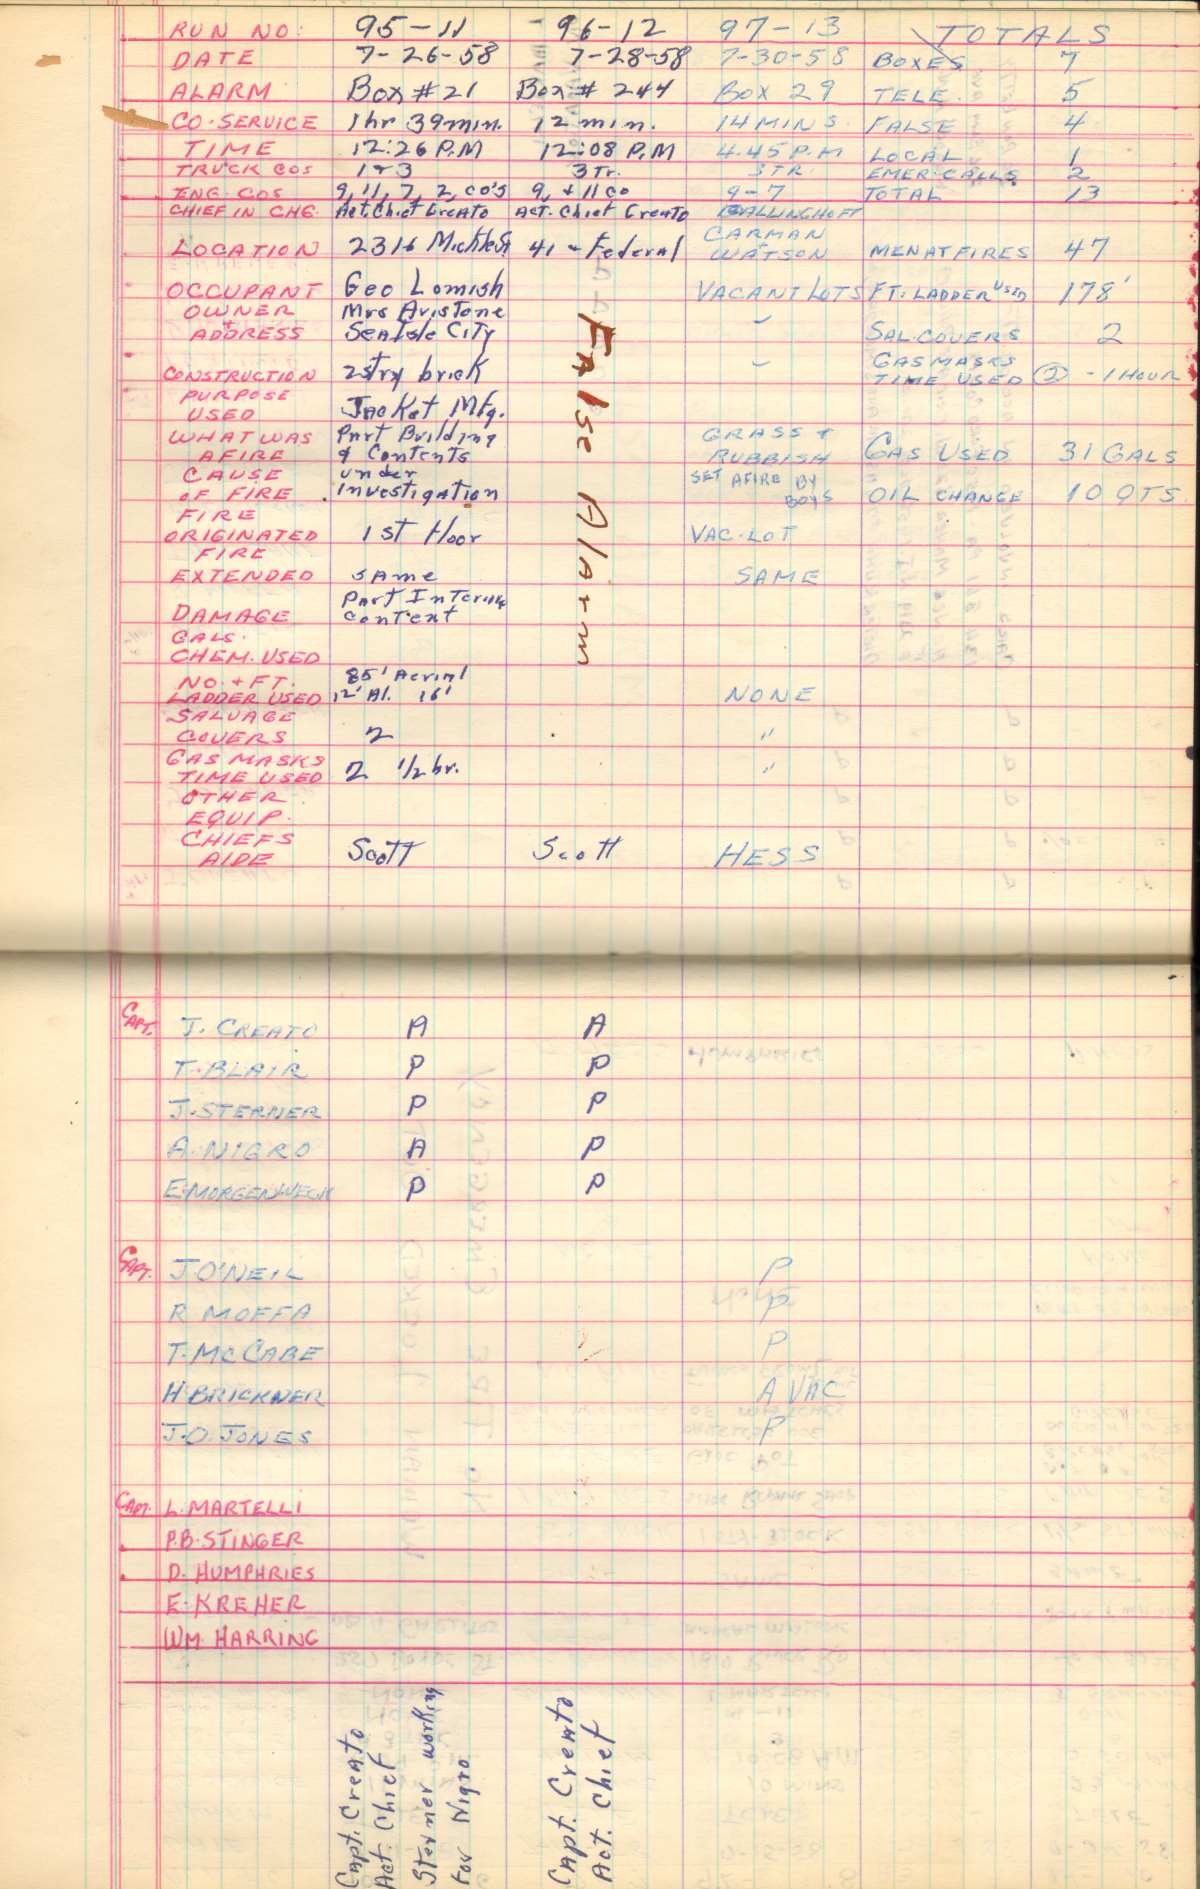 RUN NO: 95-11 96-12 97-13 TOTALS
DATE 7-26-58 7-28-58 7-30-58 BOXES 7
ALARM Box #21 Box # 244 BOX 29 TELE. 5
CO. SERVICE 1hr 39min. 12 min. 14 MINS. FALSE 4
TIME 12:26 P.M 12:08 P.M 4.45 P.M LOCAL 1
TRUCK COS 1+3 3 Tr. 3 TR. EMER. CALLS 2
ENG. COS 9, 11, 7, 2, CO'S 9, + 11 CO 9-7 TOTAL 13
CHIEF IN CHG. Act. Chief Creato Act. Chief Creato
LOCATION 2316 41 - Federal CARMAN + WATSON MEN AT FIRES 47
OCCUPANT Geo Lomish VACANT LOTS FT. LADDER USED 178'
OWNER Mrs Aristone
+ ADDRESS Sea Isle City SAL. COVERS 2
CONSTRUCTION 2 stry brick GAS MASKS TIME USED (2) - 1 HOUR
PURPOSE
USED Jacket Mfg.
WHAT WAS Part Building GRASS +
AFIRE & Contents RUBBISH GAS USED 31 GALS
CAUSE under SET AFIRE BY
OF FIRE Investigation BOYS OIL CHANGE 10 QTS.
FIRE
ORIGINATED 1st Floor VAC. LOT
FIRE
EXTENDED same SAME
Part Interior
DAMAGE content
GALS.
CHEM. USED
NO. + FT. 85' Aerial
LADDER USED 12' Al. 16' NONE
SALVAGE
COVERS 2 "
GAS MASKS
TIME USED 2 1/2 hr. "
OTHER
EQUIP.
CHIEFS
AIDE Scott Scott HESS
False Alarm
CAPT. J. CREATO A A
T. BLAIR P P
J. STERNER P P
A. NIGRO A P
E. MORGENWECK P P
CAPT. J. O'NEIL P
R MOFFA P
T. McCABE P
H BRICKNER A VAC
J. O. JONES P
CAPT. L. MARTELLI
P. B. STINGER
D. HUMPHRIES
E. KREHER
WM. HARRING
Capt. Creato
Act. Chief
Sterner working
For Nigro
Capt. Creato
Act. Chief